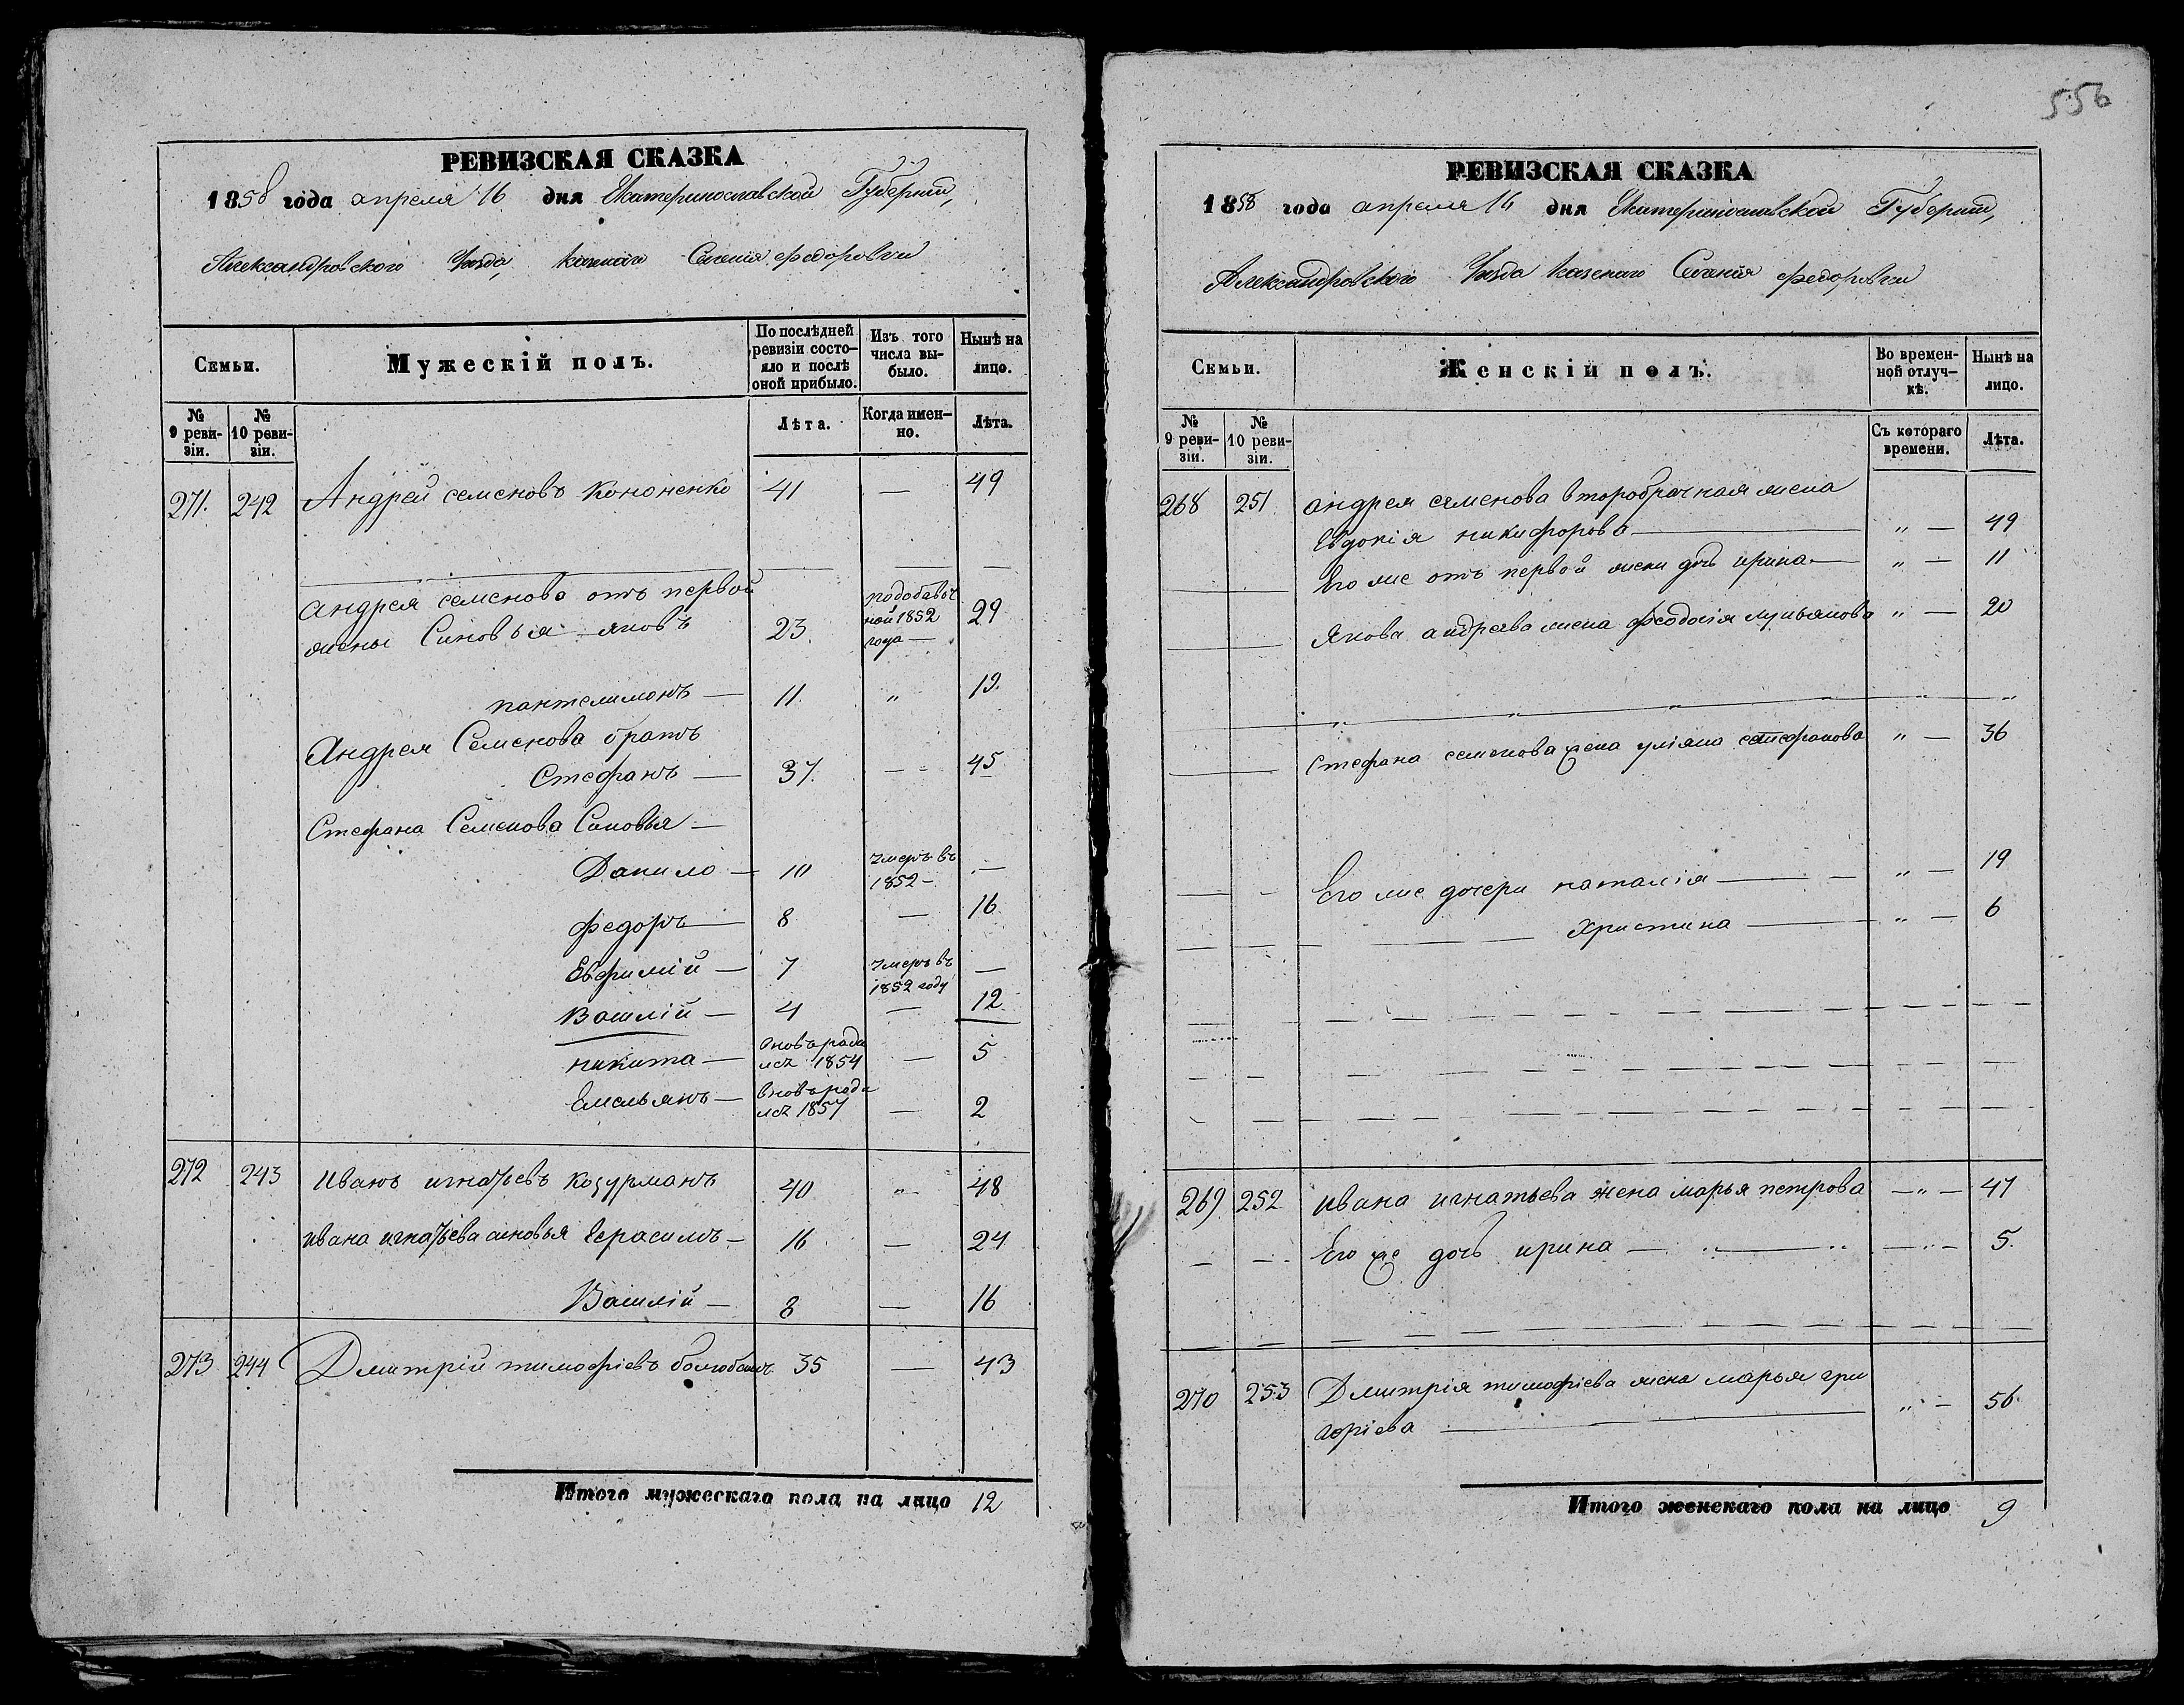 556
РЕВИЗСКАЯ СКАЗКА
1858 года апреля 16 дня Екатеринославской Губерніи,
Александровского Уезда, казенаго Селенія федоровки
Семьи.
Мужескій полъ.
По послѣдней ревизіи состо-яло и послѣ оной прибыло.
Изъ того числа вы-было.
Нынѣ на лицо.
№ 9 реви-зіи.
№ 10 реви-зіи.
Лѣта.
Когда имен-но.
Лѣта.
271. 242 Андрей семеновъ Кононенко 41 — 49
Андрея семенова отъ первой
жены Синовья яковъ 23. 1852 года — 29
пантелимонъ — 11. " 19.
Андрея Семенова братъ
Стефанъ — 37. — 45
Стефана Семенова Синовья —
Данило — 10 умеръ въ 1852 — —
федоръ — 8 — 16
Евфимій — 7 умеръ въ 1852 году —
Василій — 4 — 12
никита — вновь роди лся 1854 — 5
Емельянъ — вновь роди лся 1857 — 2
272 243 Иванъ игнатьевъ Коцурманъ 40 " 48
ивана игнатьева синовья Герасимъ — 16 — 24
Василій — 8 — 16
273 244 Дмитрій тимофіевъ 35 — 43
Итого мужескаго пола на лицо 12
РЕВИЗСКАЯ СКАЗКА
1858 года апреля 16 дня Екатеринославской Губерніи,
Александровского Уезда казенаго Селенія федоровки
Семьи.
Женскій полъ.
Во времен-ной отлуч-кѣ.
Нынѣ на лицо.
№ 9 реви-зіи.
№ 10 реви-зіи.
Съ котораго времени.
Лѣта.
268 251 андрея семенова второбрачная жена
Евдокія никифорова — " — 49
Его же отъ первой жены дочь ирина — " — 11
Якова андреева жена феодосія лукьянова " — 20
Стефана семенова жена уліяна стефанова " — 36
Его же дочери наталія — " — 19
христина — " — 6
269 252 ивана игнатьева жена марья петрова — " — 47
Его же дочь ирина — " — 5.
270 253 Дмитрія тимофіева жена марья гри
горіева — " — 56.
Итого женскаго пола на лицо 9